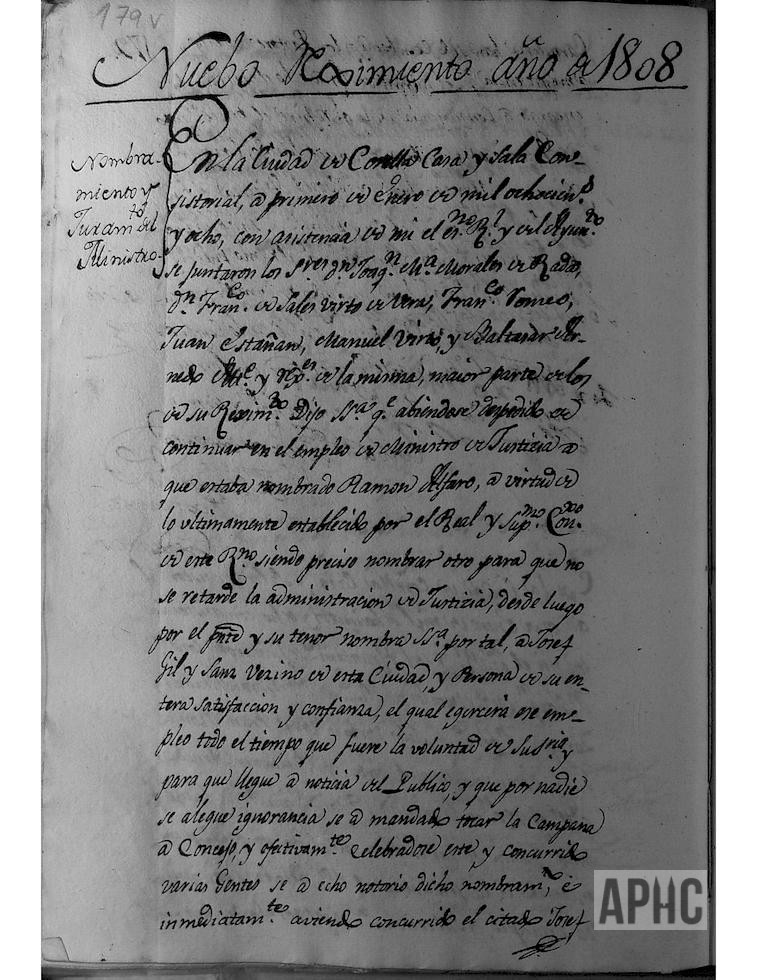 179v
Nuebo Reximiento año de 1808
Nombra-
miento y
Juram.to del
Ministro.
En la Ciudad de Corella Casa y Sala Con-
sistorial, a primero de Enero de mil ochocien.s
y ocho, con asistencia de mi el es.no R.l y del Ayun.to
se juntaron los S.res d.n Joaq.n M.a Morales de Rada,
d.n Fran.co de Sales Virto de Vera, Fran.co Someo,
Juan Estañan, Manuel Virto, y Baltasar Ar-
nedo Alc.e y Rex.es de la misma, maior parte de los
de su Rexim.to Dijo S.ria q.e abiendose despedido de
continuar en el empleo de Ministro de Justicia a
que estaba nombrado Ramon Alfaro, a virtud de
lo ultimamente establecido por el Real y Sup.mo Con.xo
de este R.no siendo preciso nombrar otro para que no
se retarde la administracion de Justizia, desde luego
por el pnte y su tenor nombra S.ria por tal, a Josef
Gil y Sanz Vezino de esta Ciudad, y Persona de su en-
tera satisfaccion y confianza, el qual egercerá ese em-
pleo todo el tiempo que fuere la voluntad de Su S.ria, y
para que llegue a noticia del Publico, y que por nadie
se alegue ignorancia se a mandado tocar la Campana
a Concejo, y efectivam.te Celebradose este y concurrido
varias Gentes se a echo notorio dicho nombram.to, é
inmediatam.te aviendo concurrido el citado Josef
APHC